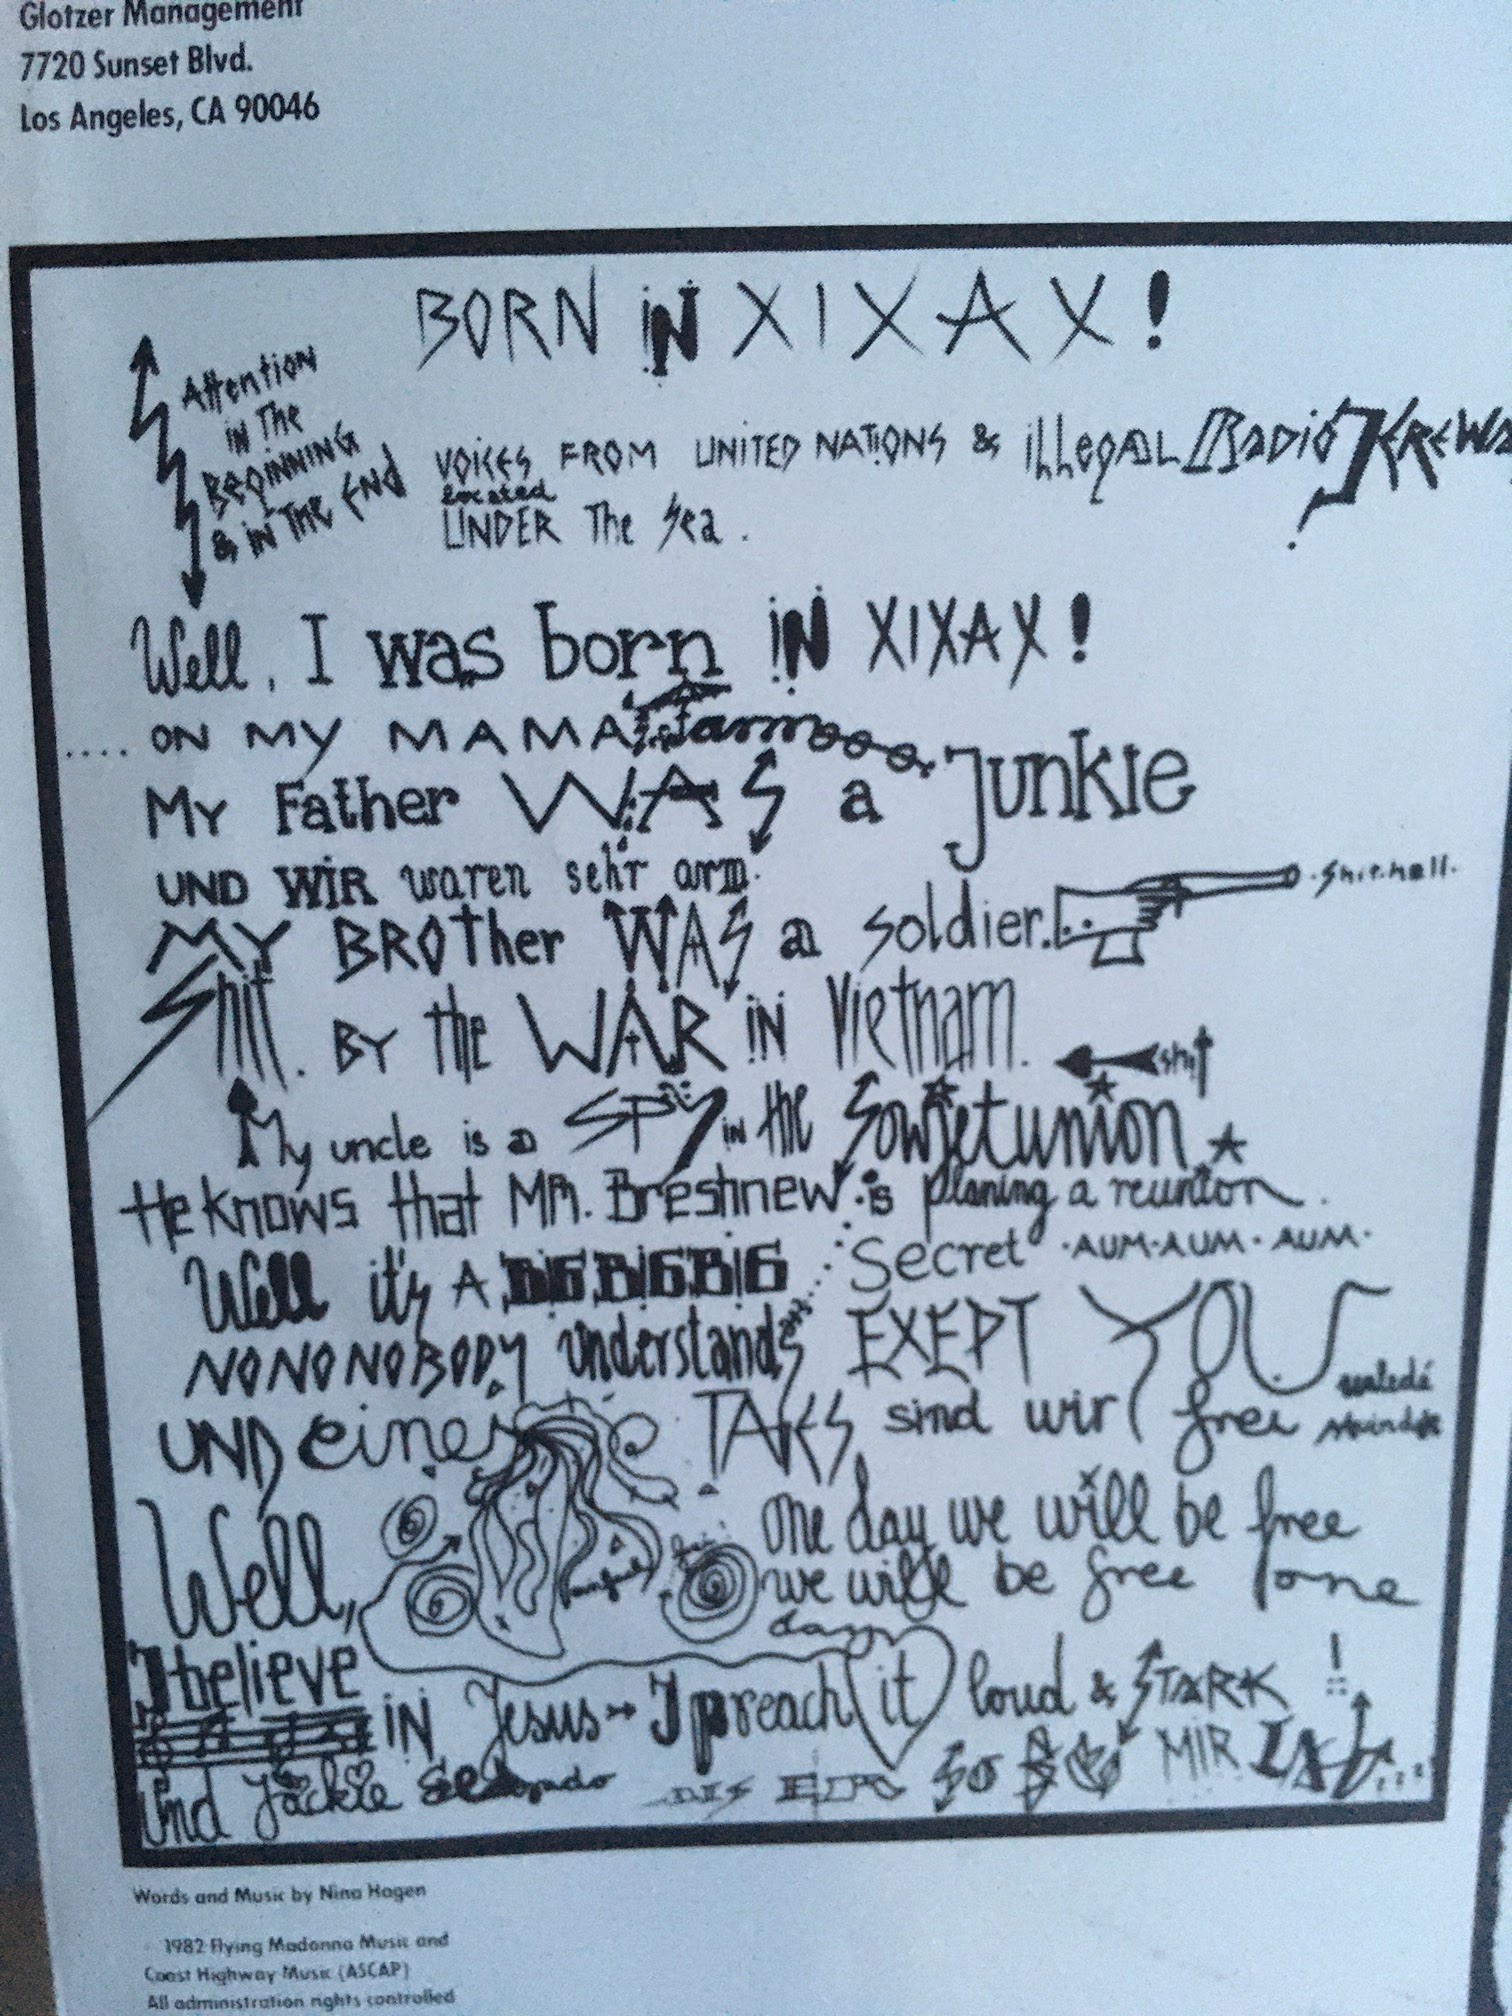 Glotzer Management
7720 Sunset Blvd.
Los Angeles, CA 90046
BORN IN XIXAX!
Attention
in The
Beginning
& in The End
VOICES FROM UNITED NATIONS & illegal Radio KREWS
located
UNDER The Sea.
Well, I was born IN XIXAX!
.... ON MY MAMAS farm
My Father WAS a Junkie
UND WIR waren sehr arm.
MY BROther WAS a soldier.
Shit. BY the WAR IN Vietnam.
shit
My uncle is a SPY IN the Sowjetunion
He knows that MR. Breshnew is planing a reunion.
Well it's A BIG BIG BIG Secret ·AUM·AUM·AUM·
NONONOBODY understands EXEPT YOU
UND eines TAGES sind wir frei
Well, one day we will be free
we will be free one
day
I believe
IN Jesus I preach it loud & STARK !
Und Jackie Eldorado SO MIR
Words and Music by Nina Hagen
1982 Flying Madonna Music and
Coast Highway Music (ASCAP)
All administration rights controlled